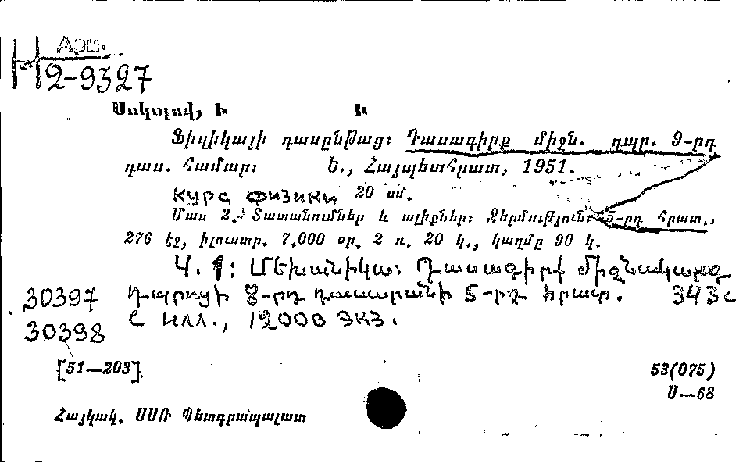 Арм.
2-9327
Սոկոլով, Ի Ի
Ֆիզիկայի դասընթաց։ Դասագիրք միջն. դպր. 9-րդ
դաս. համար։ Ե., Հայպետհրատ, 1951.
Курс физики 20 սմ.
Մաս 2. Տատանումներ և ալիքներ։ Ջերմություն։ 5-րդ հրատ.,
276 էջ, իլուստր. 7.000 օր. 2 ռ. 20 կ., կազմը 90 կ.
Ч. 1: Մեխանիկա։ Դասագիրք միջնակարգ
30397 դպրոցի 8-րդ դասարանի 5-րդ հրատ. 343 с
30398 с илл., 12000 экз.
[51—203] 53(075)
Ս—68
Հայկակ. ՍՍՌ Պետգրապալատ